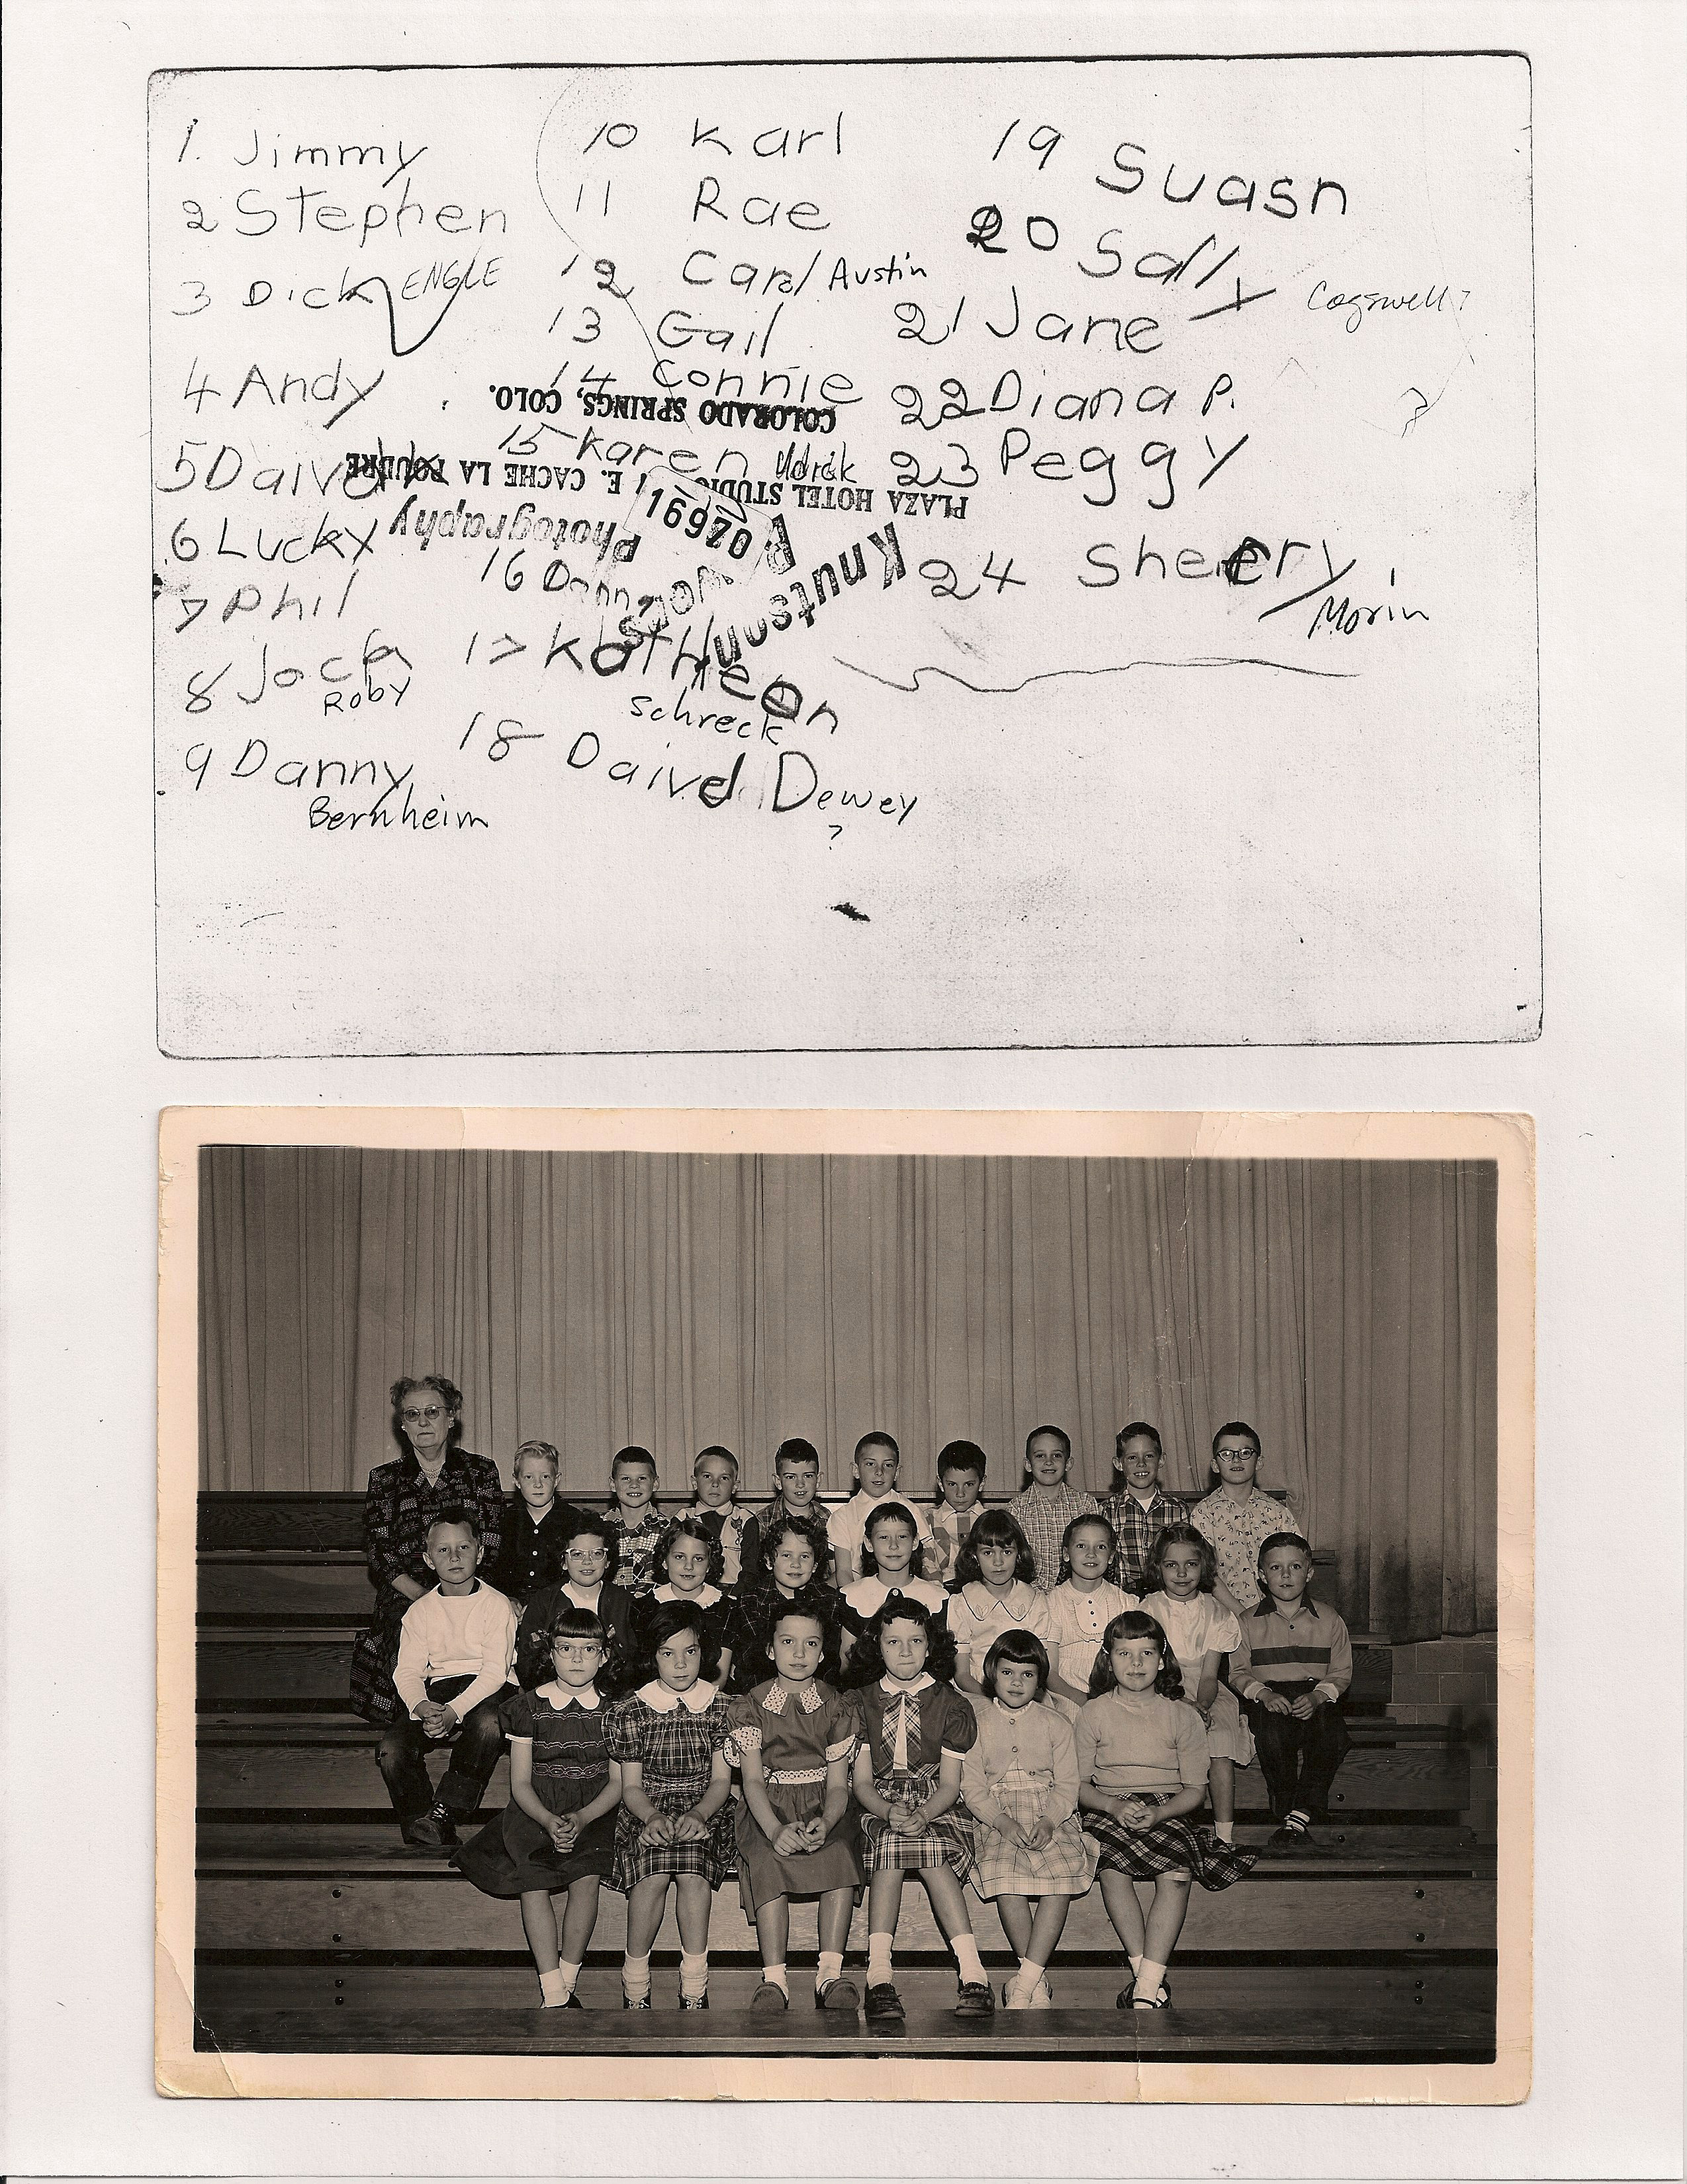 1. Jimmy
2 Stephen
3 Dick ENGLE
4 Andy
5 Daivd
6 Lucky
7 Phil
8 Jack
Roby
9 Danny
Bernheim
10 Karl
11 Rae
12 Carol Austin
13 Gail
14 Connie
15 Karen Udick
16 Donna
17 Kathleen
Schreck
18 Daivd Dewey
?
19 Suasn
20 Sally Cogswell?
21 Jane
22 Diana P.
23 Peggy
24 Sheery
Morin
Knutson
Photography
PLAZA HOTEL STUDIO, E. CACHE LA POUDRE
COLORADO SPRINGS, COLO.